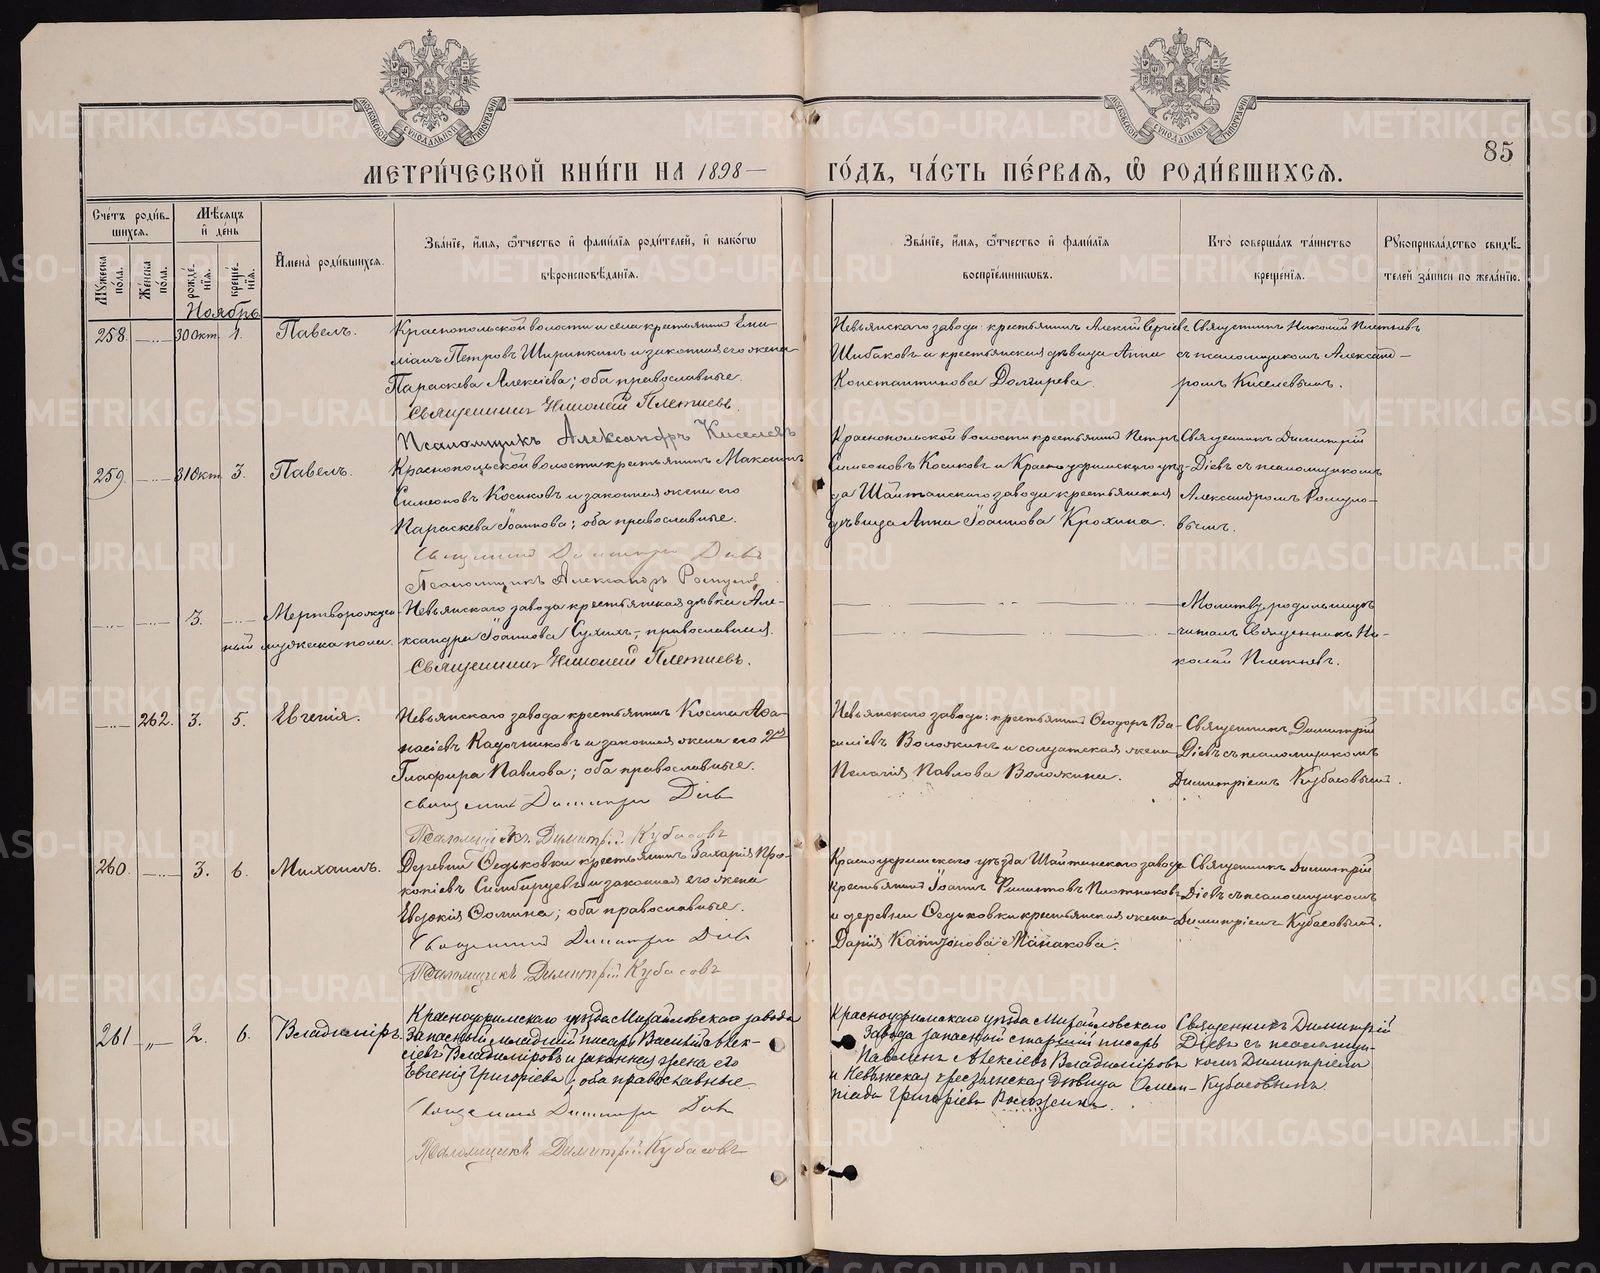 85
МЕТРИ́ЧЕСКОЙ КНИ́ГИ НА 1898 —
ГО́ДЪ, ЧА́СТЬ ПЕ́РВАѦ, Ѡ РОДИ́ВШИХСѦ.
Сче́тъ роди́в-
шихсѧ.
Мѣ́сѧцъ
и де́нь
Мꙋ́жеска по́ла.
Же́нска по́ла.
рожде́-нїѧ.
креще́-нїѧ.
И҆мена̀ роди́вшихсѧ.
Зва́нїе, и҆́мѧ, ѻ҆́тчество и҆ фами́лїѧ роди́телей, и҆ како́гѡ
вѣроисповѣ́данїѧ.
Зва́нїе, и҆́мѧ, ѻ҆́тчество и҆ фами́лїѧ
воспрїе́мникѡвъ.
Кто̀ соверша́лъ та́инство
креще́нїѧ.
Рꙋкоприкла́дство свидѣ́-
телей за́писи по жела́нїю.
Ноябрь
258. 30 Окт. 1. Павелъ.
Краснопольской волости и села крестьянинъ Еми-
ліанъ Петровъ Ширинкинъ и законная его жена
Параскева Алексіева; оба православные.
Священникъ Николай Плетневъ.
Псаломщикъ Александръ Киселевъ
Невьянскаго завода: крестьянинъ Алексій Сергіевъ
Шибаковъ и крестьянская дѣвица Анна
Константинова Долгирева.
Священникъ Николай Плетневъ
съ псаломщикомъ Александ-
ромъ Киселевымъ.
259. 31 Окт. 3. Павелъ.
Краснопольской волости крестьянинъ Максимъ
Симеоновъ Косиковъ и законная жена его
Параскева Іоаннова; оба православные.
Священникъ Димитрій Діевъ
Псаломщикъ Александръ Ромуловъ
Краснопольской волости крестьянинъ Петръ
Симеоновъ Косиковъ и Красноуфимскаго уѣз-
да Шайтанскаго завода крестьянская
дѣвица Анна Іоаннова Крохина.
Священникъ Димитрій
Діевъ съ псаломщикомъ
Александромъ Ромуло-
вымъ.
3. Мертворожден-
ный мужеска пола.
Невьянскаго завода крестьянская дѣвка Але-
ксандра Іоаннова Сухихъ, православная.
Священникъ Николай Плетневъ.
Молитву родильницѣ
читалъ Священникъ Ни-
колай Плетневъ.
262. 3. 5. Евгенія.
Невьянскаго завода крестьянинъ Косма Аѳа-
насіевъ Кадочниковъ и законная жена его 2я
Глафира Павлова; оба православные.
Священникъ Димитрій Діевъ
Псаломщикъ Димитрій Кубасовъ
Невьянскаго завода: крестьянинъ Ѳеодоръ Ва-
силіевъ Воложнинъ и солдатская жена
Пелагія Павлова Воложнина.
Священникъ Димитрій
Діевъ съ псаломщикомъ
Димитріемъ Кубасовымъ.
260. 3. 6. Михаилъ.
Деревни Ѳедьковки крестьянинъ Захарія Про-
копіевъ Симбирцевъ и законная его жена
Евдокія Ѳомина; оба православные.
Священникъ Димитрій Діевъ
Псаломщикъ Димитрій Кубасовъ
Красноуфимскаго уѣзда Шайтанскаго завода
крестьянинъ Іоаннъ Филипповъ Плотниковъ
и деревни Ѳедьковки крестьянская жена
Дарія Капитонова Манакова.
Священникъ Димитрій
Діевъ съ псаломщикомъ
Димитріемъ Кубасовымъ.
261. „ 2. 6. Владиміръ.
Красноуфимскаго уѣзда Михайловскаго завода
Запасный младшій писарь Василій Алек-
сіевъ Владиміровъ и законная жена его
Евгенія Григоріева, оба православные
Священникъ Димитрій Діевъ
Псаломщикъ Димитрій Кубасовъ
Красноуфимскаго уѣзда Михайловскаго
Завода запасный старшій писарь
Павлинъ Алексіевъ Владиміровъ
и Невьянская крестьянская дѣвица
Григоріева
Священникъ Димитрій
Діевъ съ псаломщи-
комъ Димитріемъ
Кубасовымъ